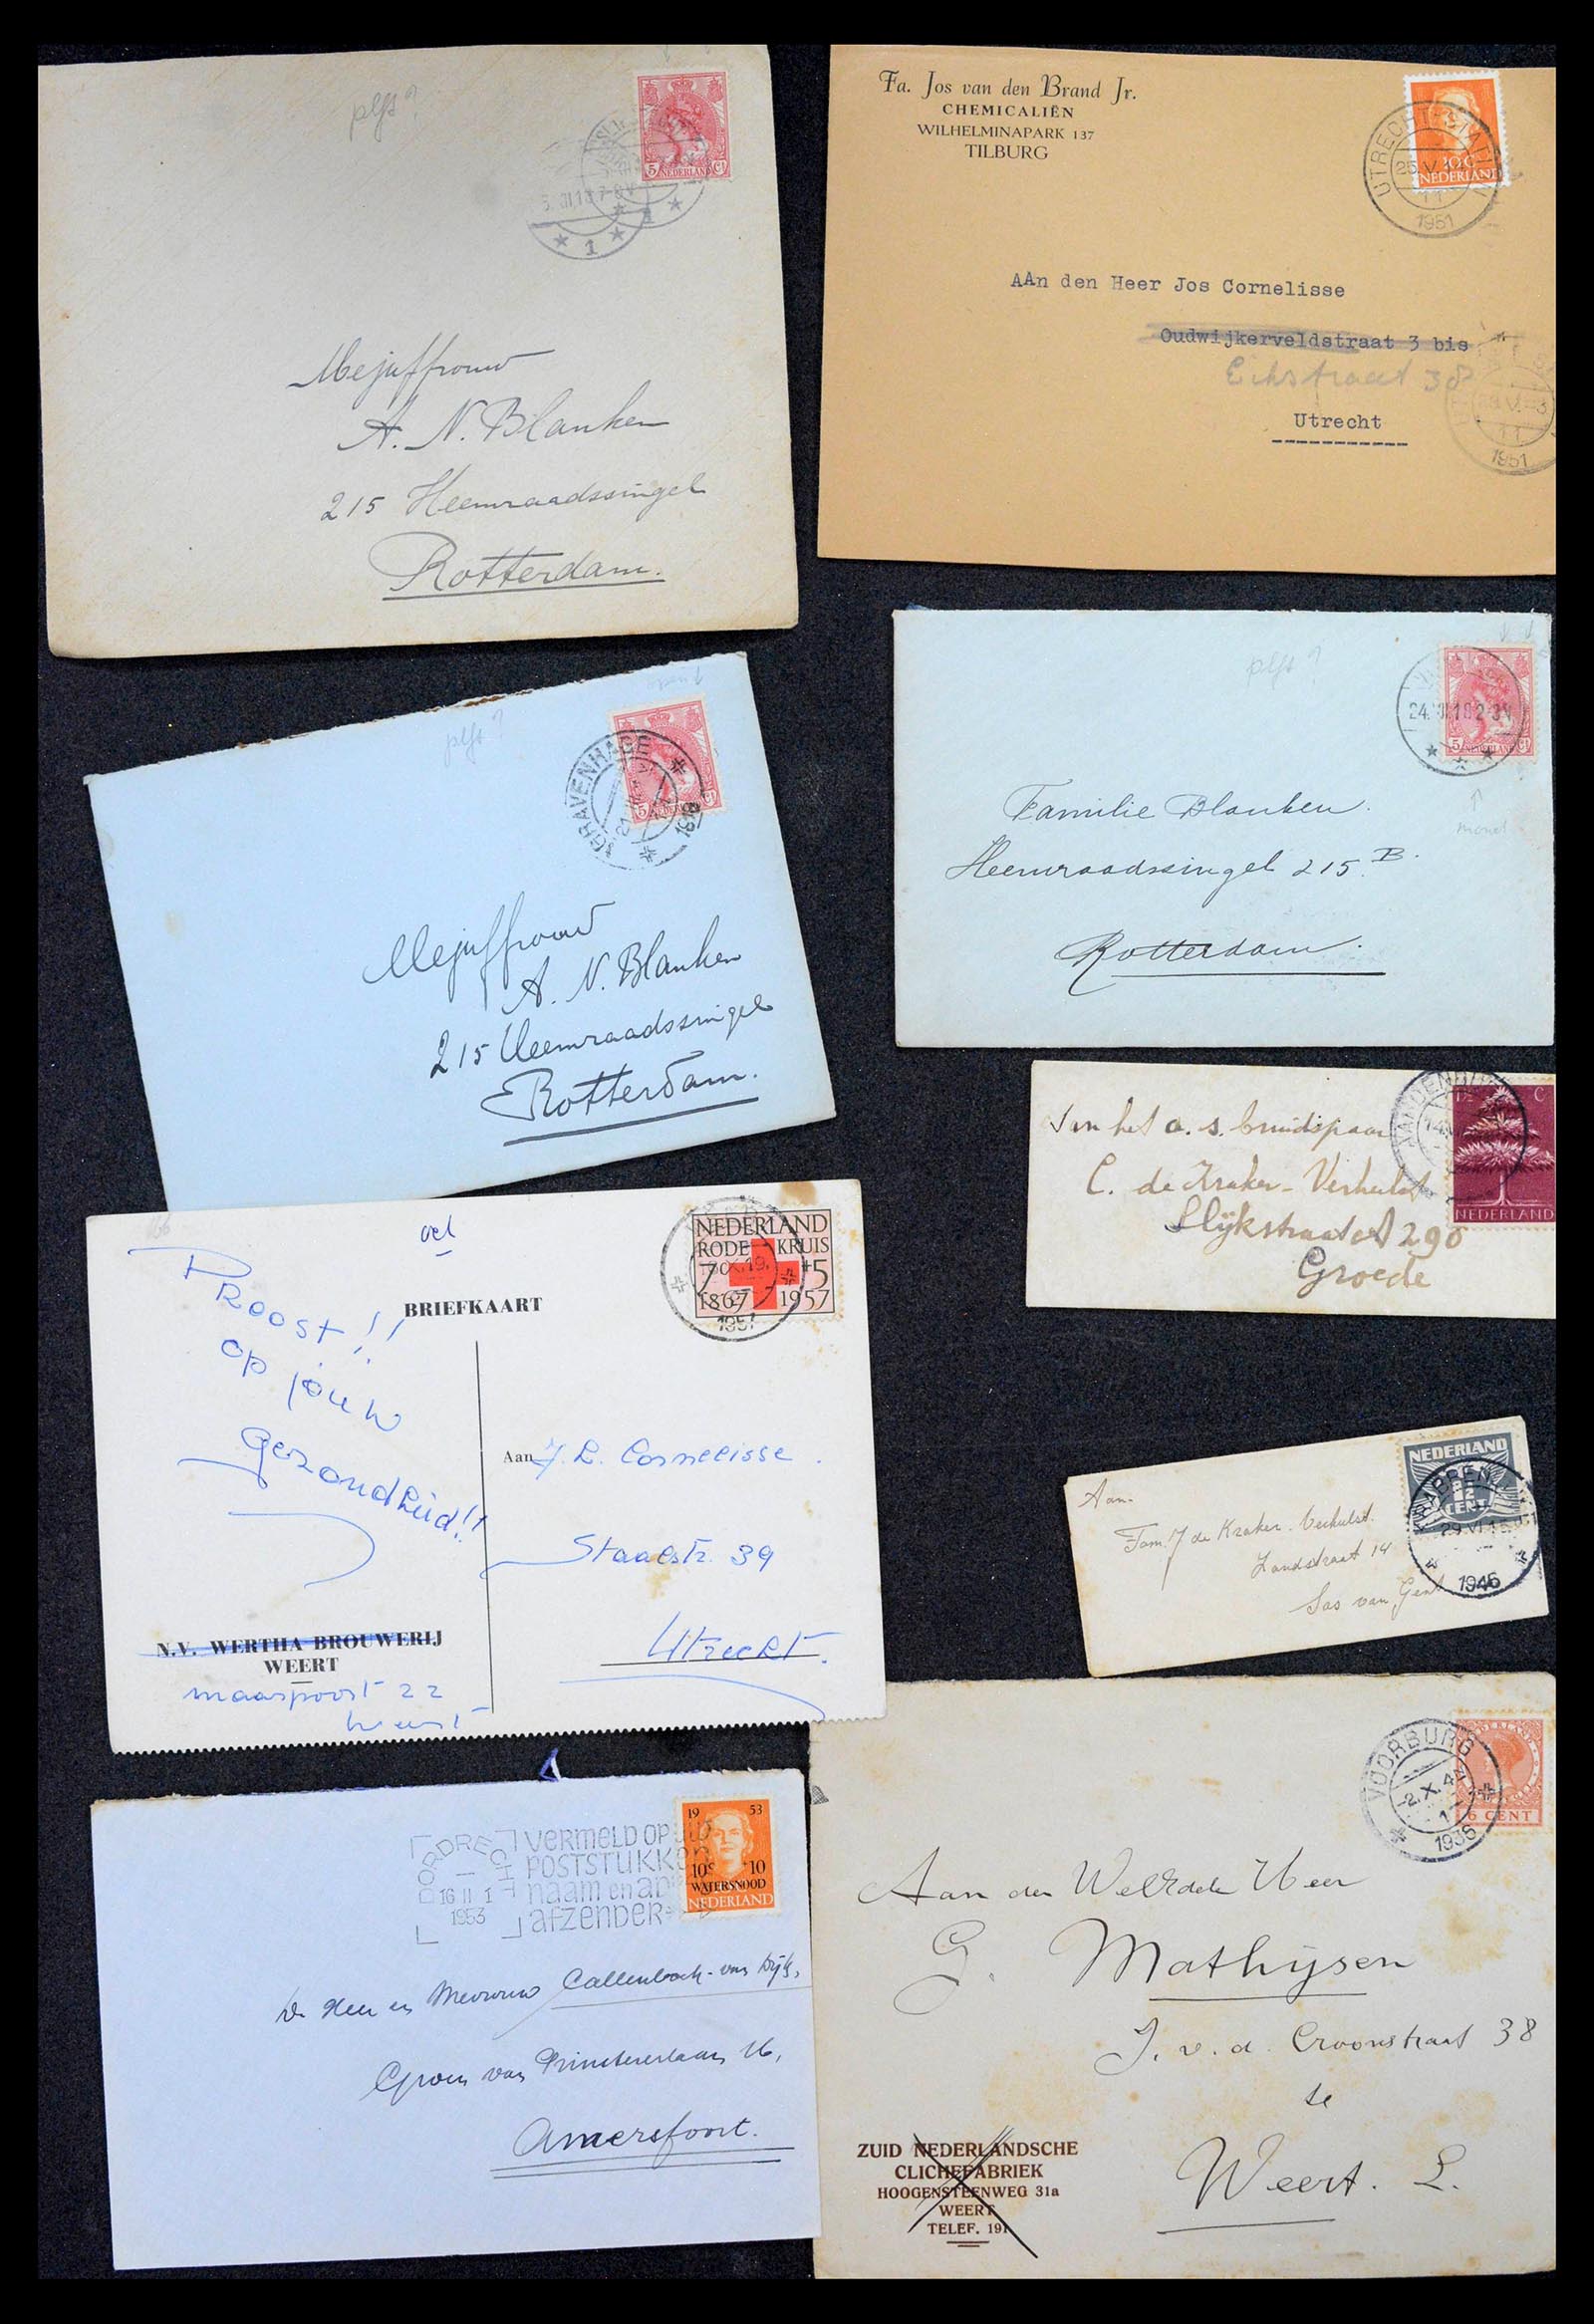 plft?
5 NEDERLAND Ct
7-8V
1
Mejuffrouw
A. N. Blanken
215 Heemraadssingel
Rotterdam.
Fa. Jos van den Brand Jr.
CHEMICALIËN
WILHELMINAPARK 137
TILBURG
10c
NEDERLAND
UTRECHT-STATION
25.V
11
1951
AAn den Heer Jos Cornelisse
Oudwijkerveldstraat 3 bis
Eikstraat 38
Utrecht
11
1951
plft?
'S GRAVENHAGE
1918
Mejuffrouw
A. N. Blanken
215 Heemraadssingel
Rotterdam.
plft?
24. 18 2-3N
5 NEDERLAND Ct
mond
Familie Blanken.
Heemraadssingel 215 B.
Rotterdam.
C
NEDERLAND
Van het a. s. bruidspaar
C. de Kraker-Verhulst
Slijkstraat A 290
Groede
oct
BRIEFKAART
NEDERLAND
RODE KRUIS
7 +5
1867 1957
1957
Proost!!
op jouw
gezondheid!!
Aan J. L. Cornelisse.
Staalstr. 39
Utrecht.
N.V. WERTHA BROUWERIJ
WEERT
maaspoort 22
Weert
NEDERLAND
CENT
29.VI
1946
Aan.
Fam. J de Kraker. Verhulst.
Zandstraat 14
Sas van Gent
19 53
10c +10
WATERSNOOD
NEDERLAND
DORDRECHT
16 II 1
1953
VERMELD OP UW
POSTSTUKKEN
naam en adres
afzender
De Heer en Mevrouw Callenbach-van Dijk,
Groen van Prinstererlaan 16,
Amersfoort.
VOORBURG
-2.X.4N
1936
6 CENT
Aan den WelEdele Heer
G. Mathijsen
J. v. d. Croonstraat 38
te
Weert. L.
ZUID NEDERLANDSCHE
CLICHEFABRIEK
HOOGENSTEENWEG 31a
WEERT
TELEF. 191